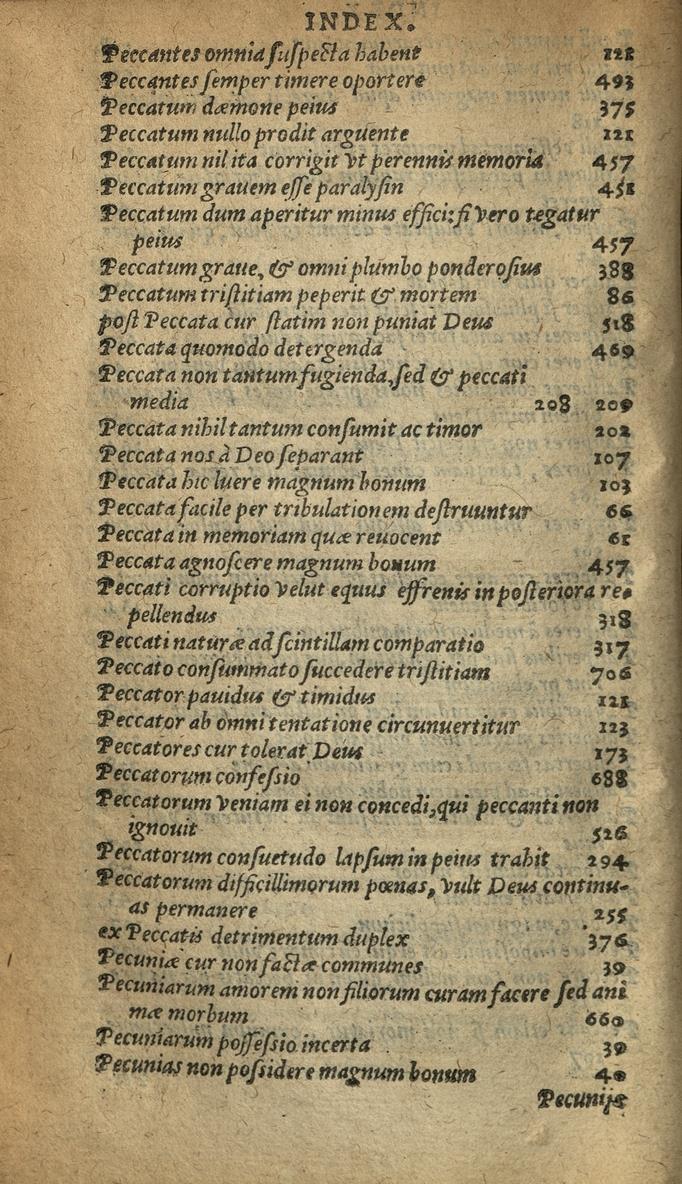 INDEX.
Peccantes omnia suspecta habent 121
Peccantes semper timere oportere 493
Peccatum dæmone peius 375
Peccatum nullo prodit arguente 121
Peccatum nil ita corrigit vt perennis memoria 457
Peccatum grauem esse paralysin 451
Peccatum dum aperitur minus effici: si vero tegatur
peius 457
Peccatum graue, & omni plumbo ponderosius 388
Peccatum tristitiam peperit & mortem 86
post Peccata cur statim non puniat Deus 518
Peccata quomodo detergenda 469
Peccata non tantum fugienda, sed & peccati
media 208 209
Peccata nihil tantum consumit ac timor 202
Peccata nos à Deo separant 107
Peccata hic luere magnum bonum 103
Peccata facile per tribulationem destruuntur 66
Peccata in memoriam quæ reuocent 61
Peccata agnoscere magnum bonum 457
Peccati corruptio velut equus effrenis in posteriora re-
pellendus 318
Peccati naturæ ad scintillam comparatio 317
Peccato consummato succedere tristitiam 706
Peccator pauidus & timidus 121
Peccator ab omni tentatione circunuertitur 123
Peccatores cur tolerat Deus 173
Peccatorum confessio 688
Peccatorum veniam ei non concedi, qui peccanti non
ignouit 526
Peccatorum consuetudo lapsum in peius trahit 294
Peccatorum difficillimorum pœnas, vult Deus continu-
as permanere 255
ex Peccatis detrimentum duplex 376
Pecuniæ cur non factæ communes 39
Pecuniarum amorem non filiorum curam facere sed ani
mæ morbum 660
Pecuniarum possessio incerta 39
Pecunias non possidere magnum bonum 40
Pecunijs